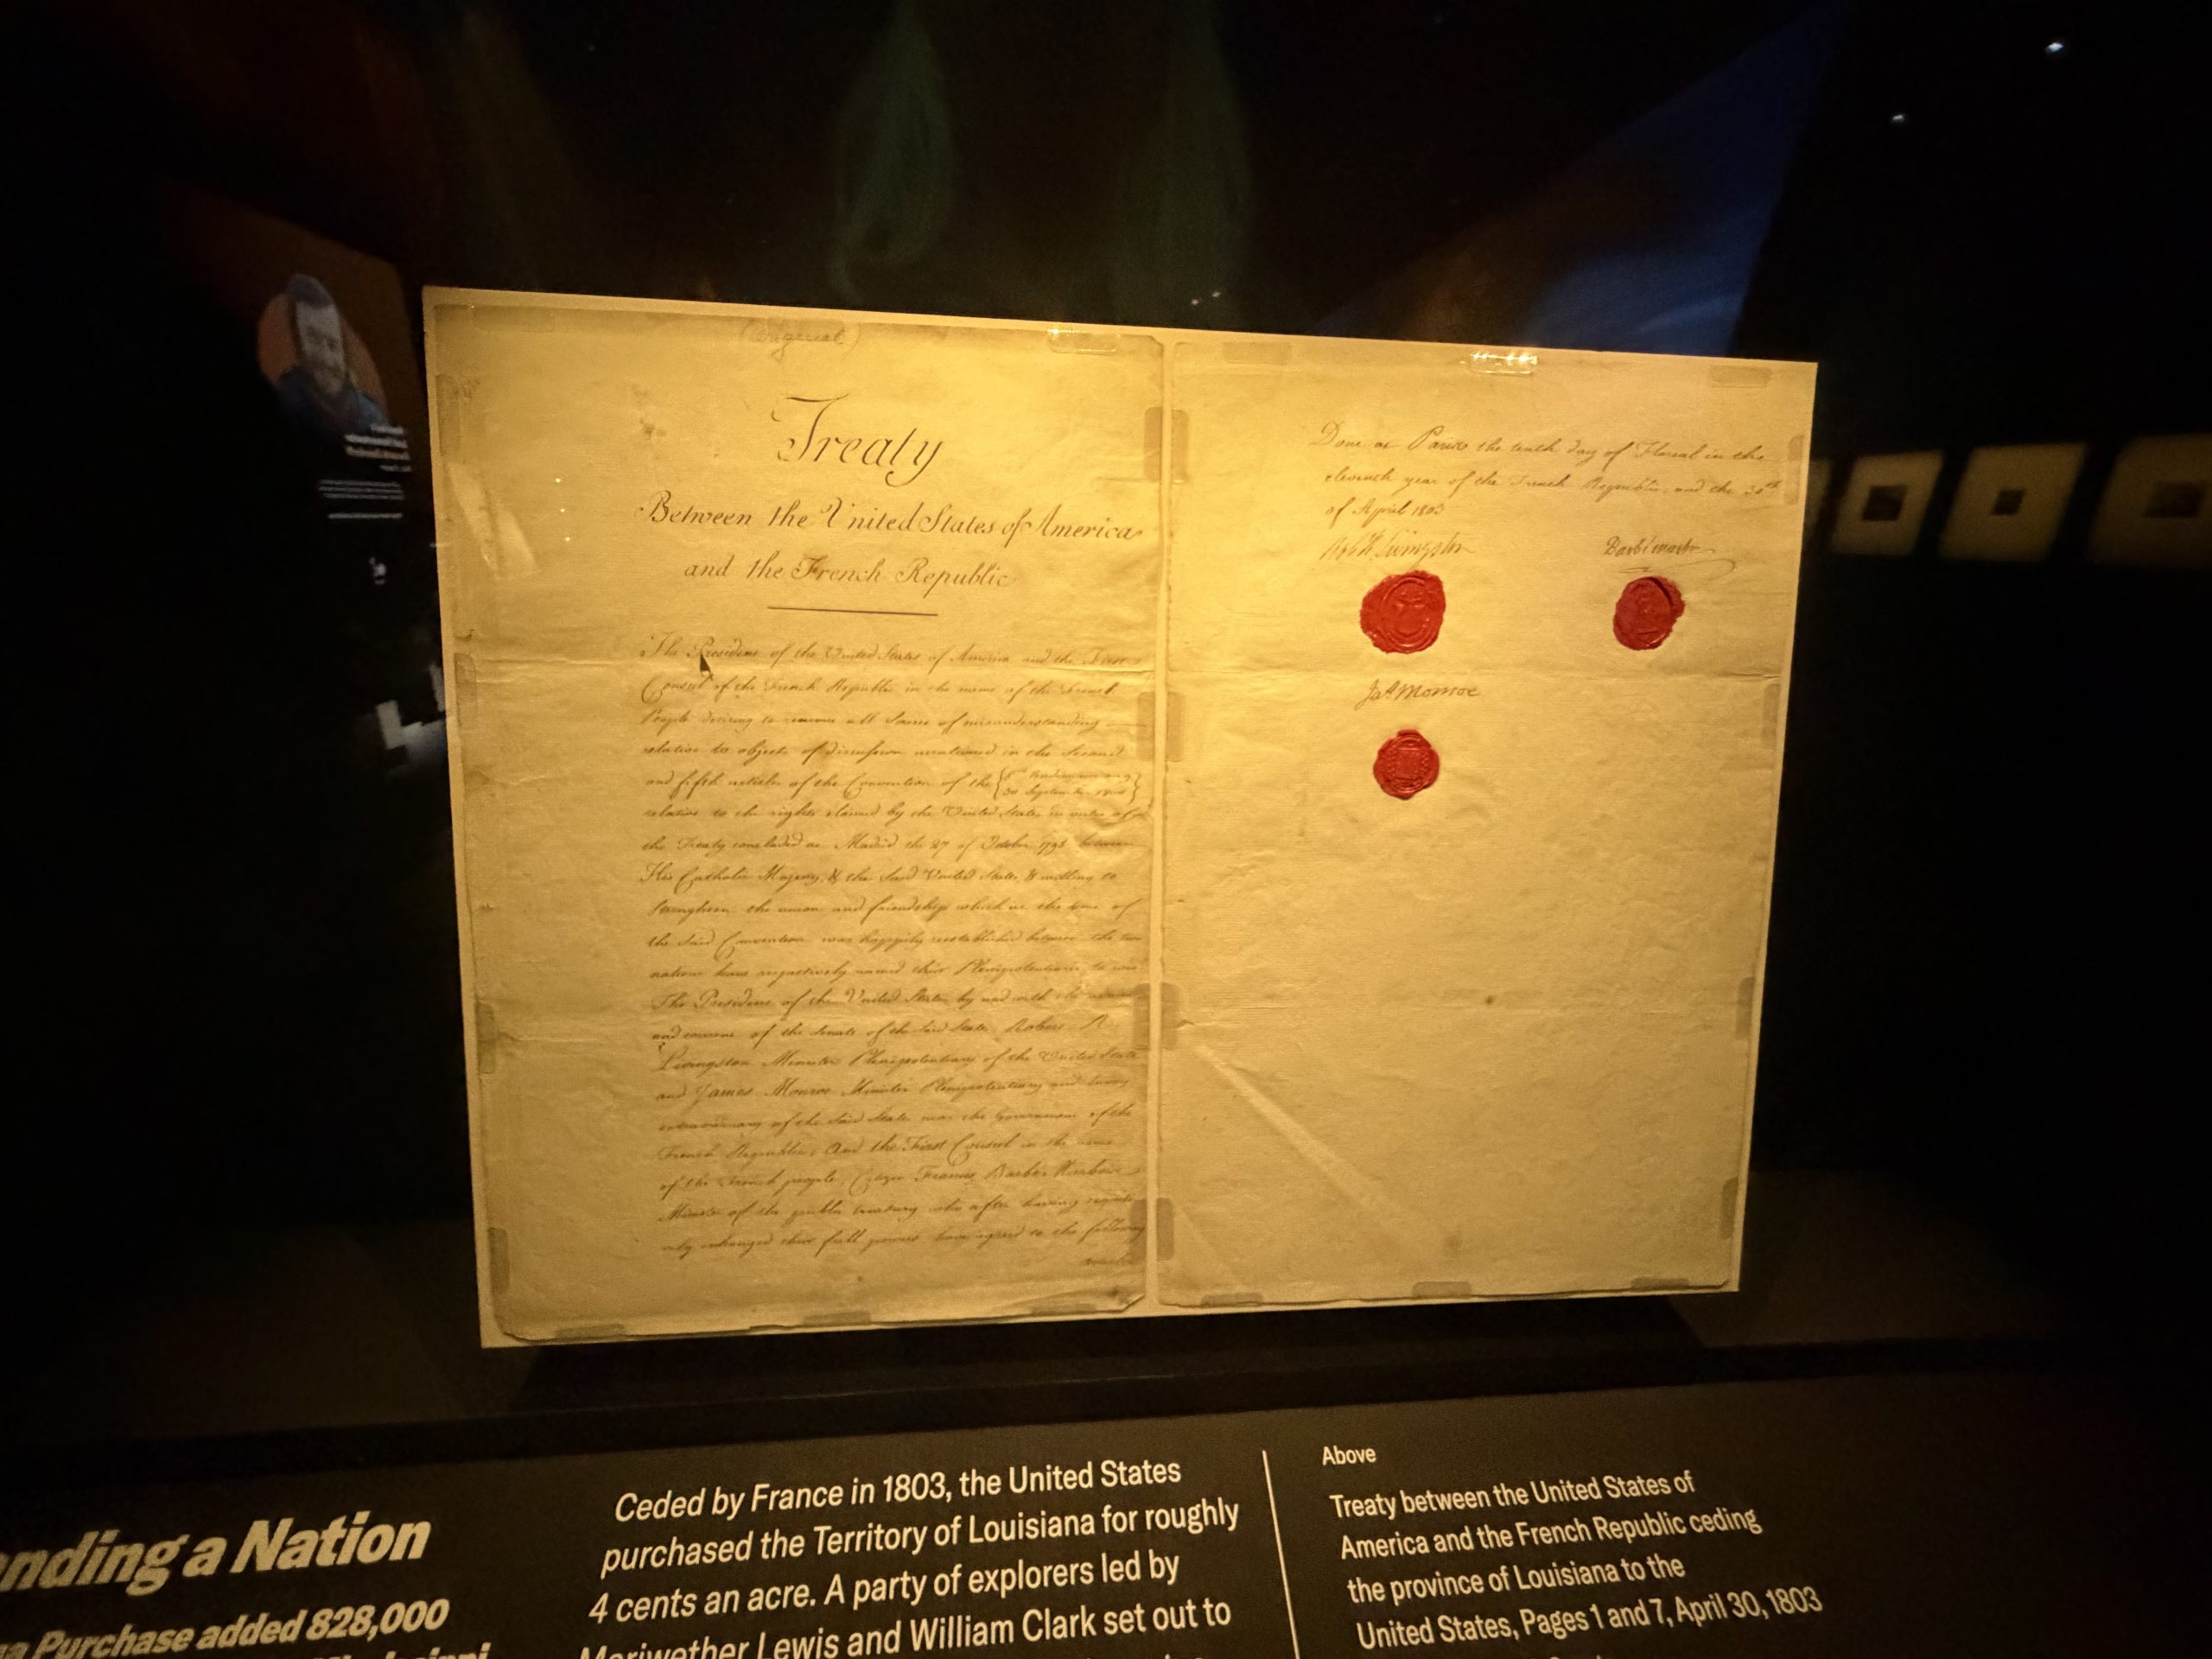 (Original)
Treaty
Between the United States of America
and the French Republic
The President of the United States of America and the First
Consul of the French Republic in the name of the French
People desiring to remove all Source of misunderstanding
relative to objects of discussion mentioned in the Second
and fifth articles of the Convention of the
30 September 1800
relative to the rights claimed by the United States in virtue of
the Treaty concluded at Madrid the 27 of October 1795 between
His Catholic Majesty, & the Said United States, & willing to
Strengthen the union and friendship which at the time of
the Said Convention was happily reestablished between the two
nations have respectively named their Plenipotentiaries to wit
The President of the United States, by and with the advice
and consent of the Senate of the Said States; Robert R.
Livingston Minister Plenipotentiary of the United States
and James Monroe Minister Plenipotentiary and Envoy
extraordinary of the Said States near the Government of the
French Republic; And the First Consul in the name
of the French people, Citizen Francis Barbé Marbois
Minister of the public treasury who after having respecti
vely exchanged their full powers have agreed to the following
articles
Done at Paris the tenth day of Floreal in the
eleventh year of the French Republic, and the 30th
of April 1803
Robt R Livingston
Barbé marbois
Jas Monroe
nding a Nation
a Purchase added 828,000
Ceded by France in 1803, the United States
purchased the Territory of Louisiana for roughly
4 cents an acre. A party of explorers led by
Meriwether Lewis and William Clark set out to
Above
Treaty between the United States of
America and the French Republic ceding
the province of Louisiana to the
United States, Pages 1 and 7, April 30, 1803